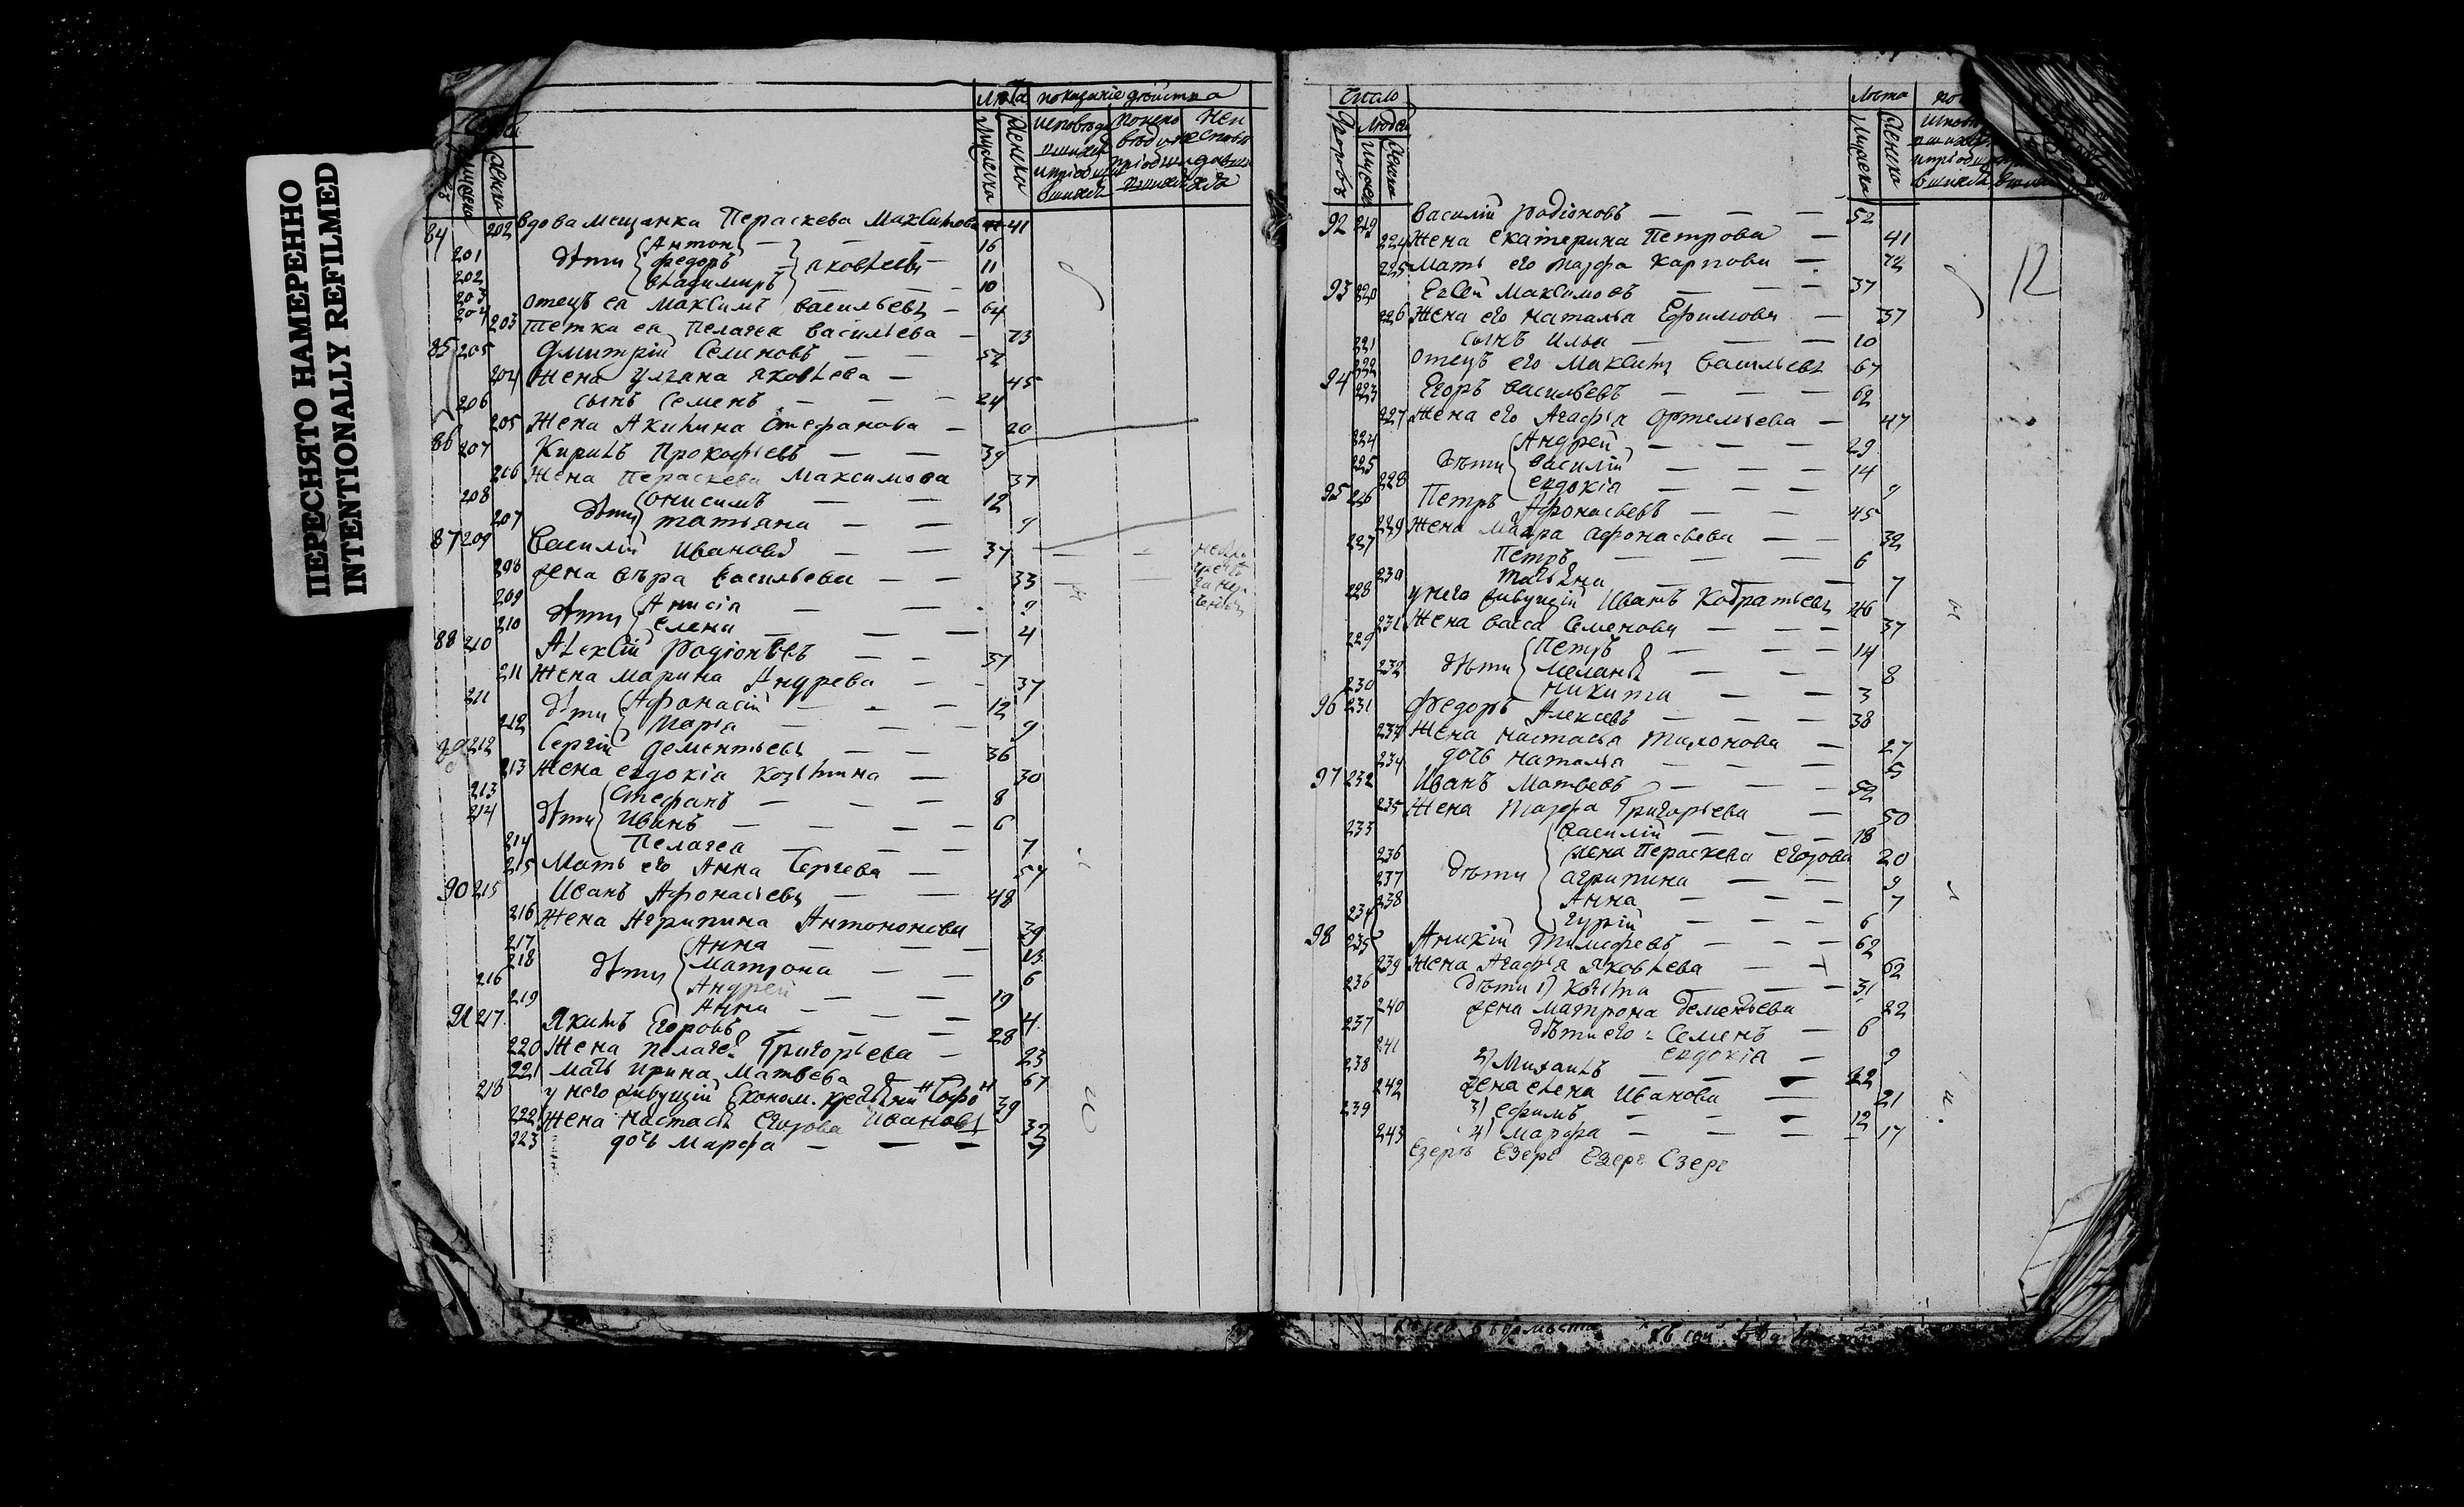 ПЕРЕСНЯТО НАМЕРЕННО
INTENTIONALLY REFILMED
Лѣта показание двойства
84 202 вдова мещанка Пераскева Максимова 41
Антон 16
201 дѣти Федоръ Яковлевы 11
202 Владимиръ 10
203 204 отецъ ея Максимъ Васильевъ 64
203 Тетка ея Пелагея Васильева 73
85 205 Дмитрій Семеновъ 52
204 Жена Улиана Яковлева 45
206 сынъ Семенъ 24
205 Жена Акилина Стефанова 20
86 207 Кирилъ Прокофьевъ 39
206 Жена Пераскева Максимова 37
208 дѣти Онисимъ 12
207 татьяна 9
87 209 Василій Ивановъ 37
208 жена Вѣра Васильева 33
209 дѣти Анисія 9
210 елена 4
88 210 Алексѣй Родіоновъ 37
211 Жена Марина Андрева 37
211 дѣти Афонасій 12
212 Марія 9
89 212 Сергій Дементьевъ 36
213 Жена евдокіа Козьмина 30
213 Стефанъ 8
214 дѣти Иванъ 6
214 Пелагея 7
215 Мать его Анна Сергева 57
90 215 Иванъ Афонасьевъ 48
216 Жена Агрипина Антононова 39
217 Анна 13
218 дѣти Матрона 6
216 Андрей 19
219 Анна 4
91 217 Якимъ Егоровъ 28
220 Жена пелагея Григорьева 23
221 мать Ирина Матвева 67
218 у него живущій Эконом. крестьянинъ 39
222 Жена Настасья Егорова Ивановъ 32
223 дочь Марфа 7
Число Лѣта
Дворовъ Людей Мужеска Женска
92 219 Василій Родіоновъ 52
224 Жена Екатерина Петрова 41
225 Мать его Марфа Карпова 72
93 220 Евсей Максимовъ 37
226 Жена его Наталья Ефимова 37
221 сынъ Илья 10
222 отецъ его Максимъ Васильевъ 67
94 223 Егоръ Васильевъ 62
227 Жена его Агафья Ортемьева 47
224 Андрей 29
225 дѣти Василій 14
228 евдокіа 9
95 226 Петръ Афонасьевъ 45
229 Жена Мавра Афонасьева 32
227 Петръ 6
230 Татьяна 7
228 у него живущій Иванъ Кодратьевъ 46
231 Жена Васса Семенова 37
229 Петръ 14
232 дѣти Меланья 8
230 Никита 3
96 231 Федоръ Алексевъ 38
233 Жена Настасья Тихонова 27
234 дочь Наталья 5
97 232 Иванъ Матвеевъ 52
235 Жена Марфа Григорьева 50
233 Василій 18
236 жена Пераскева Егорова 20
237 дѣти Агрипина 9
238 Анна 7
234 Гурій 6
98 235 Аникій Тимофевъ 62
239 Жена Агафья Яковлева 62
236 дѣти 1) Козьма 31
240 жена Матрона Дементьева 22
237 дѣти его: Семенъ 6
241 евдокіа 9
238 2) Михаилъ 22
242 жена елена Иванова 21
239 3) Ефимъ 12
243 4) Марфа 17
Езеръ Езеръ Езеръ Езеръ
12